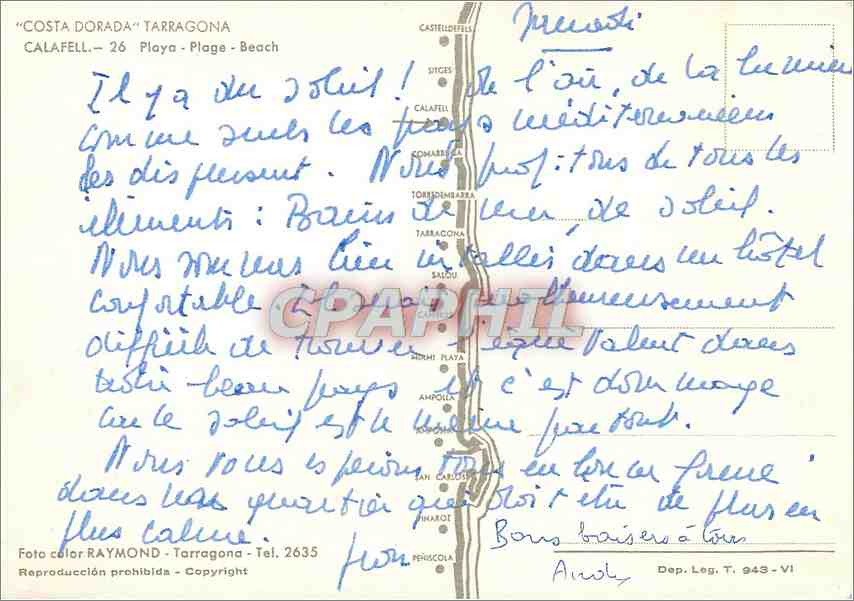 "COSTA DORADA" TARRAGONA
CALAFELL.— 26 Playa - Plage - Beach
CASTELLDEFELS
SITGES
CALAFELL
COMARRUGA
TORREDEMBARRA
TARRAGONA
SALOU
CAMBRILS
MIAMI PLAYA
AMPOLLA
AMPOSTA
SAN CARLOS
VINAROZ
PEÑISCOLA
Il y a du soleil! de l'air, de la lumière
comme seuls les pays méditerranéens
les dispensent. Nous profitons de tous les
éléments: Bains de mer, de soleil.
Nous sommes bien installés dans un hôtel
confortable. Il serait malheureusement
difficile de trouver l'équivalent dans
notre beau pays et c'est dommage
car le soleil est le même partout.
Nous vous espérons tous en bonne forme
dans le quartier qui doit être de plus en
plus calme.
Bons baisers à tous
Andy
CPAPHIL
Foto color RAYMOND - Tarragona - Tel. 2635
Reproducción prohibida - Copyright
Dep. Leg. T. 943 - VI